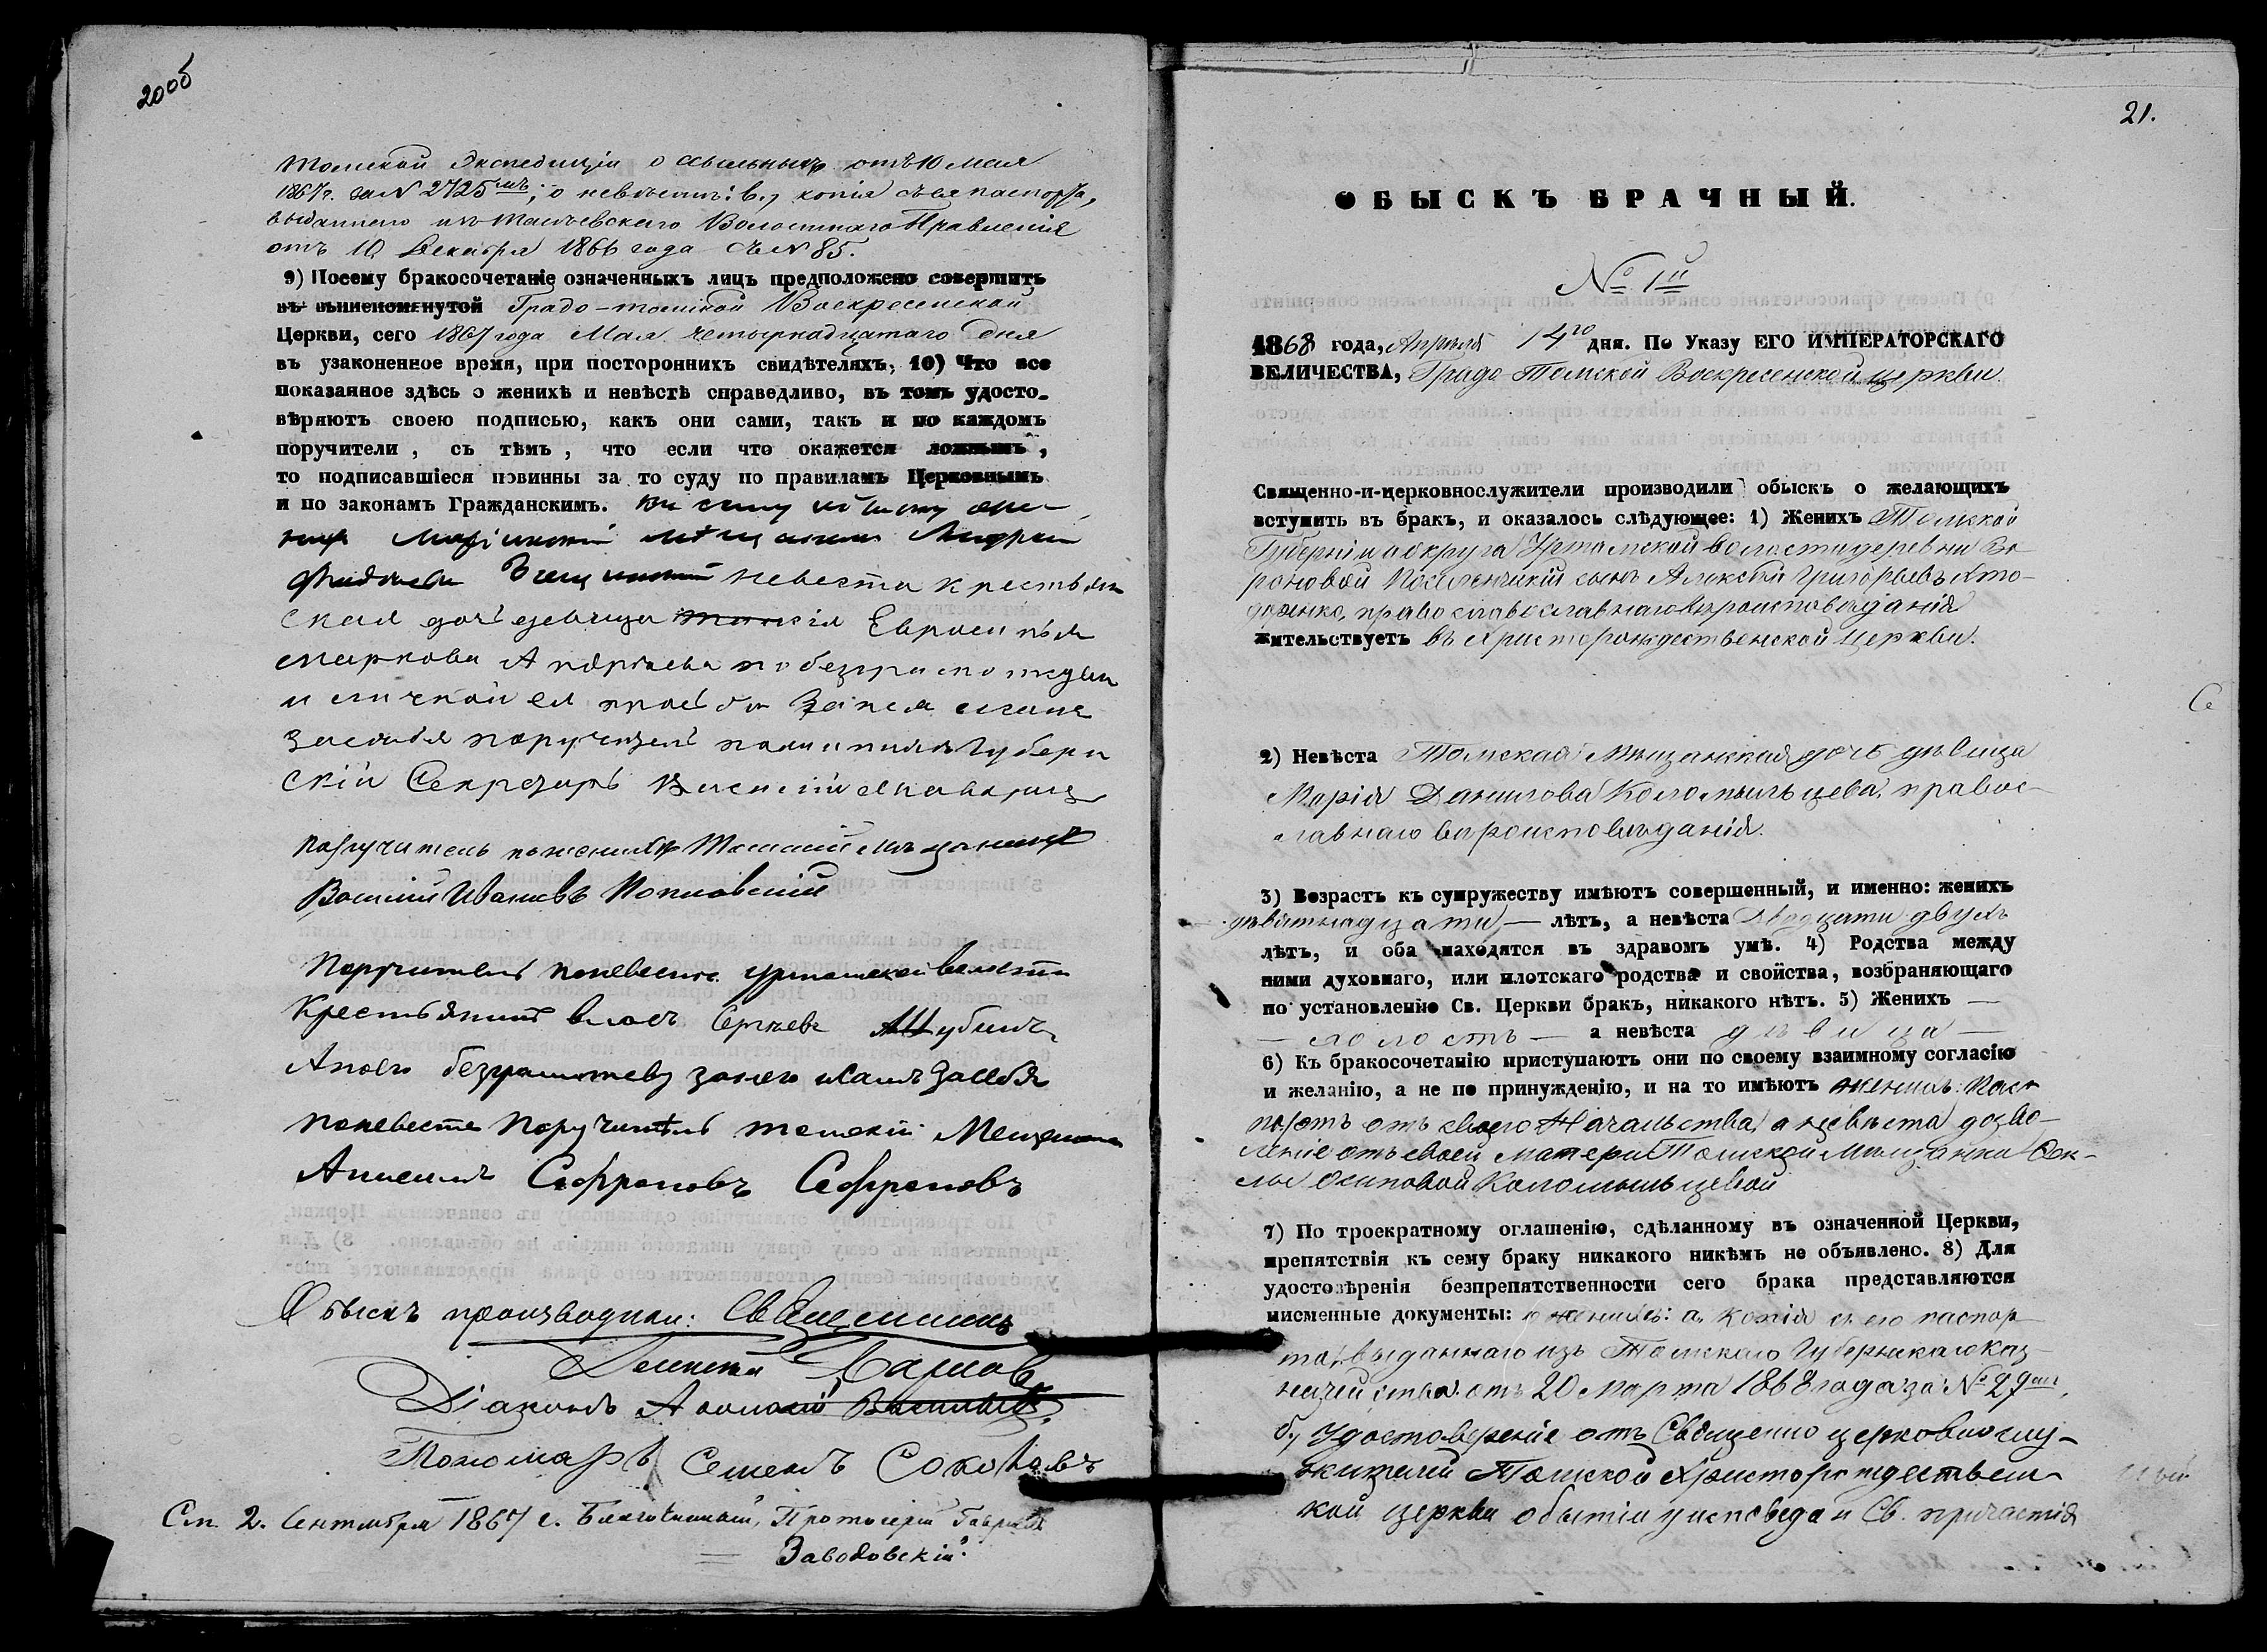 20об
Томской Экспедиціи о ссыльныхъ отъ 10 Мая
1867 г. за N 2725мъ; о невѣстѣ: в., копія съ ея паспорта,
выданнаго изъ Волостнаго Правленія
отъ 10 Декабря 1866 года за N 85.
9) Посему бракосочетаніе означенныхъ лицъ предположено совершить
въ вышепомянутой Градо-Томской Воскресенской
Церкви, сего 1867 года Мая четырнадцатаго дня
въ узаконенное время, при постороннихъ свидѣтеляхъ, 10) Что все
показанное здѣсь о женихѣ и невѣстѣ справедливо, въ томъ удосто-
вѣряютъ своею подписью, какъ они сами, такъ и по каждомъ
поручители, съ тѣмъ, что если что окажется ложнымъ,
то подписавшіеся повинны за то суду по правиламъ Церковнымъ
и по законамъ Гражданскимъ. Къ сему
невеста крестьян
ская дочь девица Евросинья
Маркова по безграмотству
и личной ея прозбе
засебя поручителъ Губерн
скій Секретарь Василій
Поручитель по женихѣ Томскій мѣщанинъ
Василій Ивановъ
Поручитель поневесте уртамской волости
Крестьянинъ власъ Сергѣевъ
Апоего безграмотству занего исамъ засебя
поневесте поручитель томскій Мещанинъ
Сафроновъ Сафроновъ
Обыскъ производили: Священникъ
Діаконъ
Пономарь Семенъ Соколовъ
См. 2. Сентября 1867 г. Благочинный, Протоіерей Гавріилъ
Заводовскій.
21.
ОБЫСКЪ БРАЧНЫЙ.
№ 1й
1868 года, Апреля 14го дня. По Указу ЕГО ИМПЕРАТОРСКАГО
ВЕЛИЧЕСТВА, Градо-Томской Воскресенской церкви
Священно-и-церковнослужители производили обыскъ о желающихъ
вступить въ бракъ, и оказалось слѣдующее: 1) Женихъ Томской
Губерніи и округа Уртамской волости деревни Во-
роновой Поселенчискій сынъ Алексѣй Григорьевъ
православославнаго вѣроисповѣданія
жительствуетъ въ Христорождественской церкви.
2) Невѣста Томская Мѣщанская дочь дѣвица
Марія Данилова Коломыльцева, правос-
лавнаго вѣроисповѣданія.
3) Возрастъ къ супружеству имѣютъ совершенный, и именно: женихъ
девятнадцати — лѣтъ, а невѣста двадцати двухъ
лѣтъ, и оба находятся въ здравомъ умѣ. 4) Родства между
ними духовнаго, или плотскаго родства и свойства, возбраняющаго
по установленію Св. Церкви бракъ, никакого нѣтъ. 5) Женихъ —
— холостъ — а невѣста дѣвица —
6) Къ бракосочетанію приступаютъ они по своему взаимному согласію
и желанію, а не по принужденію, и на то имѣютъ женихъ: Пас-
портъ отъ своего Начальства, а невѣста дозво-
леніе отъ своей матери Томской Мѣщанки Фек-
лы Осиповой Коломыльцевой
7) По троекратному оглашенію, сдѣланному въ означенной Церкви,
препятствія къ сему браку никакого никѣмъ не объявлено. 8) Для
удостовѣренія безпрепятственности сего брака представляются
писменные документы: о женихѣ: а, копія съ его паспор
та, выданнаго изъ Томскаго Губернскаго Каз-
начейства отъ 20 Марта 1868 года за №
б., Удостовереніе отъ Священно церковнослу-
жителей Томской Христорождествен-
кой церкви о бытіи у исповеди и Св. причастія